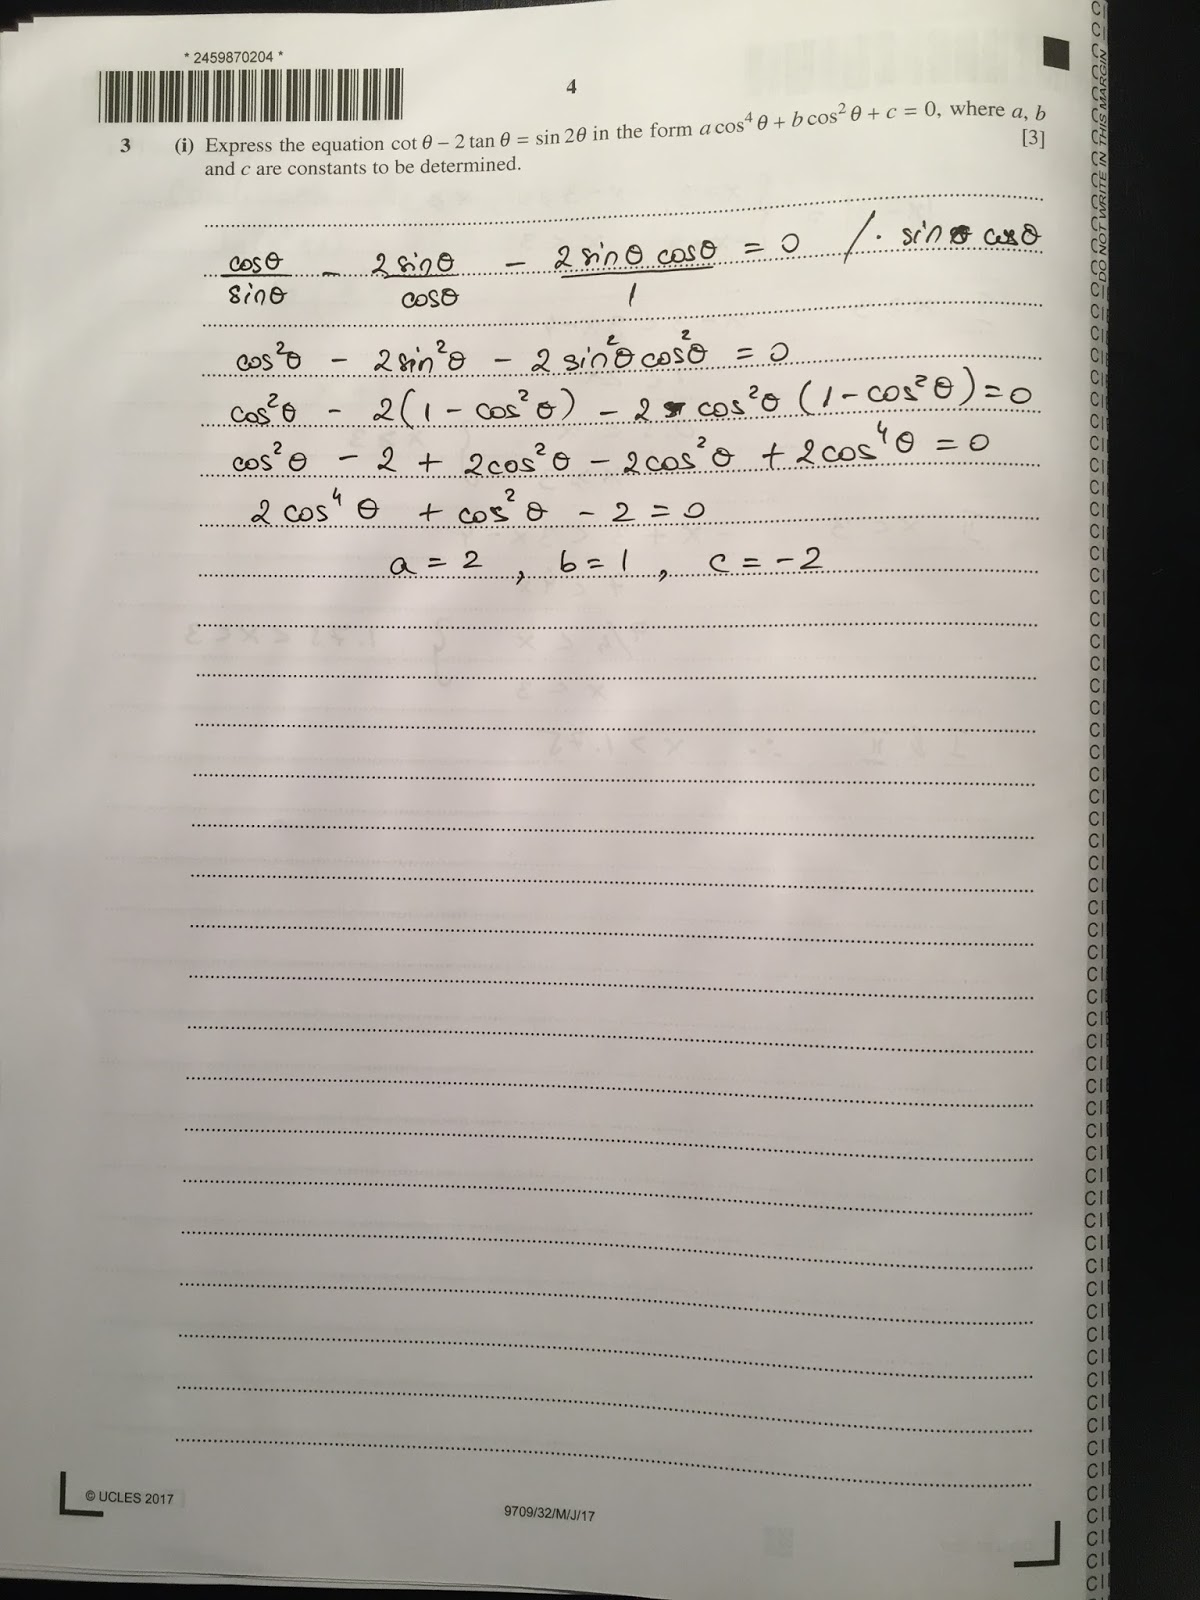 * 2459870204 *
4
3 (i) Express the equation cot θ − 2 tan θ = sin 2θ in the form a cos⁴ θ + b cos² θ + c = 0, where a, b
and c are constants to be determined. [3]
cosθ/sinθ − 2 sinθ/cosθ − 2 sinθ cosθ/1 = 0 /· sinθ cosθ
cos²θ − 2 sin²θ − 2 sin²θ cos²θ = 0
cos²θ − 2(1 − cos²θ) − 2 cos²θ (1 − cos²θ) = 0
cos²θ − 2 + 2cos²θ − 2cos²θ + 2cos⁴θ = 0
2 cos⁴ θ + cos² θ − 2 = 0
a = 2 , b = 1 , c = −2
© UCLES 2017
9709/32/M/J/17
DO NOT WRITE IN THIS MARGIN